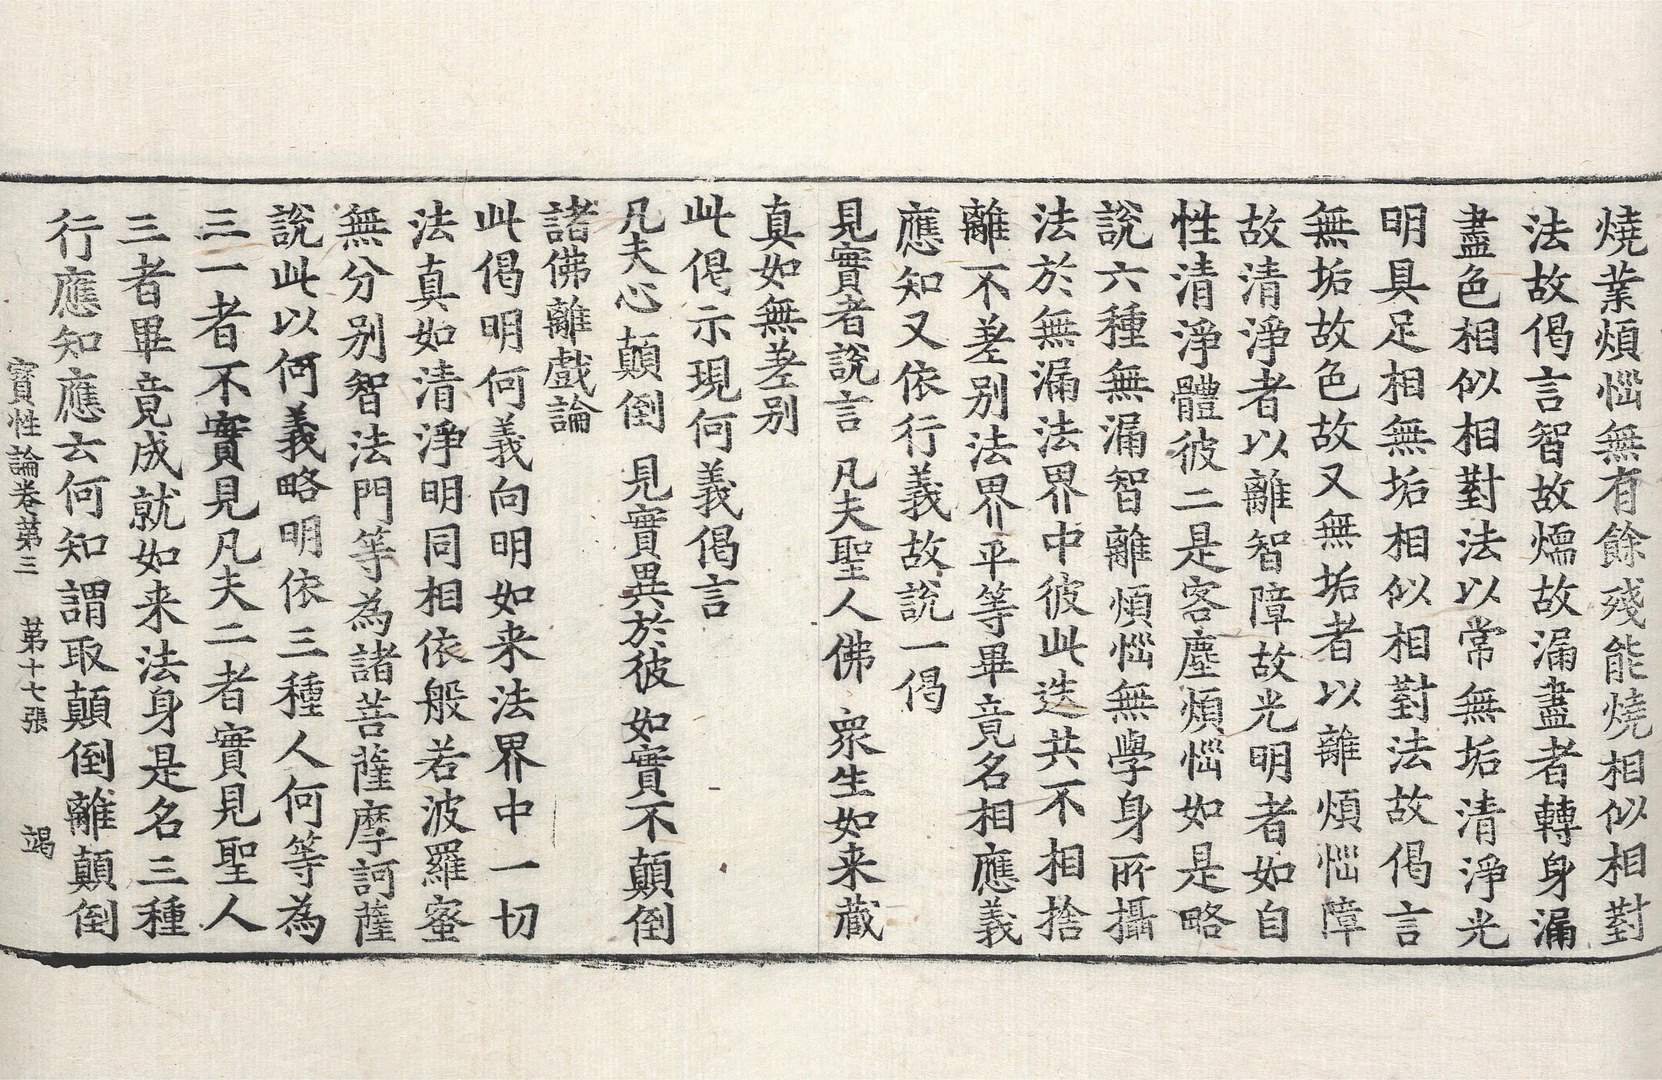 燒業煩惱無有餘殘能燒相似相對
法故偈言智故煗故漏盡者轉身漏
盡色相似相對法以常無垢清淨光
明具足相無垢相似相對法故偈言
無垢故色故又無垢者以離煩惱障
故清淨者以離智障故光明者如自
性清淨體彼二是客塵煩惱如是略
說六種無漏智離煩惱無學身所攝
法於無漏法界中彼此迭共不相捨
離不差别法界平等畢竟名相應義
應知又依行義故說一偈
見實者說言 凡夫聖人佛 衆生如来藏
真如無差别
此偈示現何義偈言
凡夫心顛倒 見實異於彼 如實不顛倒
諸佛離戲論
此偈明何義向明如来法界中一切
法真如清淨明同相依般若波羅蜜
無分别智法門等為諸菩薩摩訶薩
說此以何義略明依三種人何等為
三一者不實見凡夫二者實見聖人
三者畢竟成就如来法身是名三種
行應知應云何知謂取顛倒離顛倒
寶性論卷第三 第十七張 竭